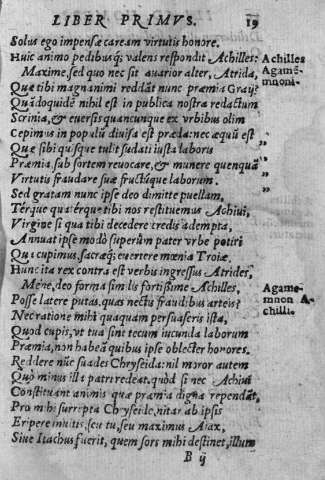 LIBER PRIMVS. 19
Solus ego impensæ caream virtutis honore.
Huic animo pedibusq; valens respondit Achilles: Achilles
Maxime, sed quo nec sit auarior alter, Atrida, Agamē-
Quæ tibi magnanimi reddāt nunc præmia Graij? mnoni.
Quādoquidē nihil est in publica nostra redactum
Scrinia, & euersis quancunque ex vrbibus olim
Cepimus in populū diuisa est præda: nec æquū est
Quæ sibi quisque tulit sudati iusta laboris
Præmia, sub sortem reuocare, & munere quenquā
Virtutis fraudare suæ fructúque laborum.
Sed gratam nunc ipse deo dimitte puellam,
Térque quatérque tibi nos restituemus Achiui,
Virgine si qua tibi decedere credis adempta,
Annuat ipse modò superûm pater vrbe potiri
Qui cupimus, sacraq; euertere mœnia Troiæ.
Hunc ita rex contra est verbis ingressus Atrides,
Mene, deo forma similis fortissime Achilles, Agame-
Posse latere putas, quas nectis fraudibus arteis? mnon A-
Nec ratione mihi quaquam persuaseris ista, chilli.
Quod cupis, vt tua sint tecum iucunda laborum
Præmia, non habeā quibus ipse oblecter honores.
Reddere nūc suades Chryseida: nil moror autem
Quò minus illa patri redeat, quòd si nec Achiui
Constituant animis quæ præmia digna rependāt,
Pro mihi surrepta Chryseide, nitar ab ipsis
Eripere muitis, seu tu, seu maximus Aiax,
Siue Itachus fuerit, quem sors mihi destinet, illum
B ij